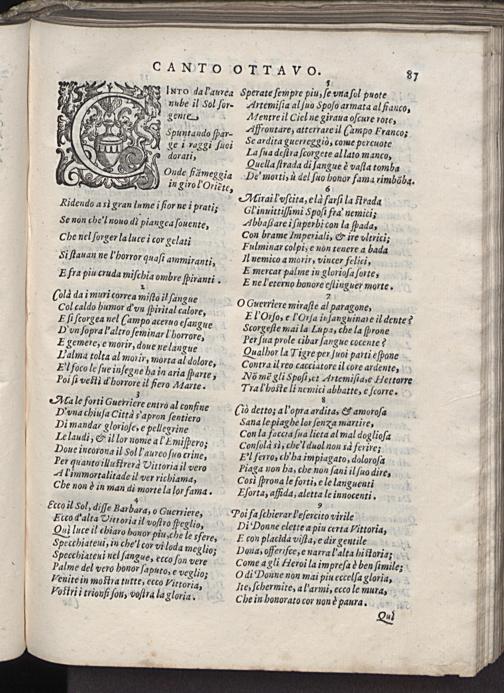 CANTO OTTAVO.
87
CINTO da l'aurea
nube il Sol sor-
gente
Spuntando spar-
ge i raggi suoi
dorati,
Onde fiãmeggia
in giro l'Oriẽte,
Ridendo a sì gran lume i fior ne i prati;
Se non che'l nouo dì piangea souente,
Che nel sorger la luce i cor gelati
Si stauan ne l'horror quasi ammiranti,
E fra piu cruda mischia ombre spiranti.
2
Colà da i muri correa misto il sangue
Col caldo humor d'un spirital calore,
E si scorgea nel Campo aceruo essangue
D'vn sopra l'altro seminar l'horrore,
E gemere, e morir, doue ne langue
L'alma tolta al morir, morta al dolore,
E'l foco le sue insegne ha in aria sparte,
Poi si vestì d'horrore il fiero Marte.
3
Ma le forti Guerriere entrò al confine
D'una chiusa Città s'apron sentiero
Di mandar gloriose, e pellegrine
Le laudi, & il lor nome a l'Emispero;
Doue incorona il Sol l'aureo suo crine,
Per quanto illustrerà Vittoria il vero
A l'immortalitade il ver richiama,
Che non è in man di morte la lor fama.
4
Ecco il Sol, disse Barbara, o Guerriere,
Ecco d'alta Vittoria il vostro speglio,
Quì luce il chiaro honor piu, che le sfere,
Specchiateui, in che'l cor vi loda meglio;
Specchiateui nel sangue, ecco son vere
Palme del vero honor saputo, e veglio;
Venite in mostra tutte, ecco Vittoria,
Vostri i trionfi son, vostra la gloria.
5
Sperate sempre piu, se vna sol puote
Artemisia al suo Sposo armata al fianco,
Mentre il Ciel ne giraua oscure rote,
Affrontare, atterrare il Campo Franco;
Se ardita guerreggiò, come percuote
La sua destra scorgete al lato manco,
Quella strada di sangue è vasta tomba
De' morti, ù del suo honor fama rimbõba.
6
Mirai l'vscita, e là farsi la strada
Gl'inuittissimi Sposi fra' nemici;
Abbassare i superbi con la spada,
Con brame Imperiali, & ire vltrici;
Fulminar colpi, e non tenere a bada
Il nemico a morir, vincer felici,
E mercar palme in gloriosa sorte,
E ne l'eterno honore estinguer morte.
7
O Guerriere miraste al paragone,
E l'Orso, e l'Orsa insanguinare il dente?
Scorgeste mai la Lupa, che la sprone
Per sua prole cibar sangue cocente?
Qualhor la Tigre per suoi parti espone
Contra il reo cacciatore il core ardente,
Nõ mẽ gli Sposi, et Artemisia, e Hettorre
Tra l'hoste li nemici abbatte, e scorre.
8
Ciò detto; a l'opra ardita, & amorosa
Sana le piaghe lor senza martire,
Con la faccia sua lieta al mal dogliosa
Consola sì, che'l duol non sà ferire;
E'l ferro, ch'ha impiagato, dolorosa
Piaga non ha, che non sani il suo dire,
Così sprona le forti, e le languenti
Esorta, affida, aletta le innocenti.
9
Poi fa schierar l'esercito virile
Di Donne elette a piu certa Vittoria,
E con placida vista, e dir gentile
Dona, offerisce, e narra l'alta historia;
Come a gli Heroi la impresa è ben simile;
O di Donne non mai piu eccelsa gloria,
Ite, schermite, a l'armi, ecco le mura,
Che in honorato cor non è paura.
Quì